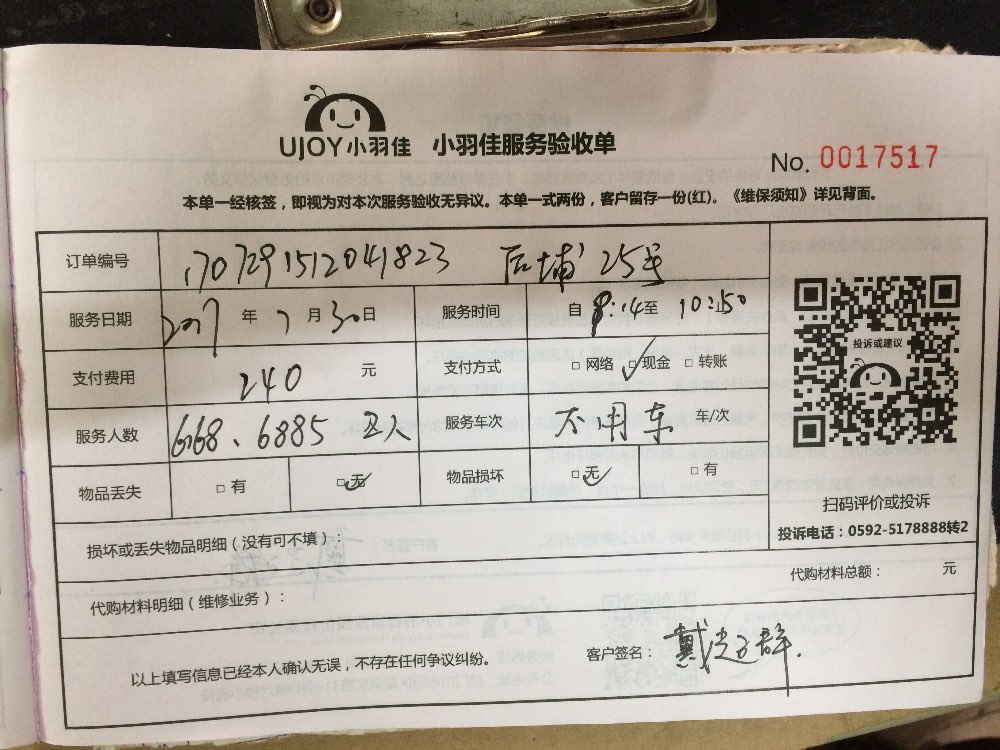 UJOY小羽佳 小羽佳服务验收单
No. 0017517
本单一经核签，即视为对本次服务验收无异议。本单一式两份，客户留存一份(红)。《维保须知》详见背面。
订单编号 1707291512041823 后埔 25号
服务日期 2017 年 7 月 30 日 服务时间 自 8:14 至 10:50
支付费用 240 元 支付方式 □ 网络 ☑ 现金 □ 转账
服务人数 668、6885 2人 服务车次 不用车 车/次
物品丢失 □ 有 ☑ 无 物品损坏 ☑ 无 □ 有
投诉或建议
扫码评价或投诉
投诉电话：0592-5178888转2
损坏或丢失物品明细（没有可不填）：
代购材料明细（维修业务）： 代购材料总额： 元
以上填写信息已经本人确认无误，不存在任何争议纠纷。 客户签名： 戴